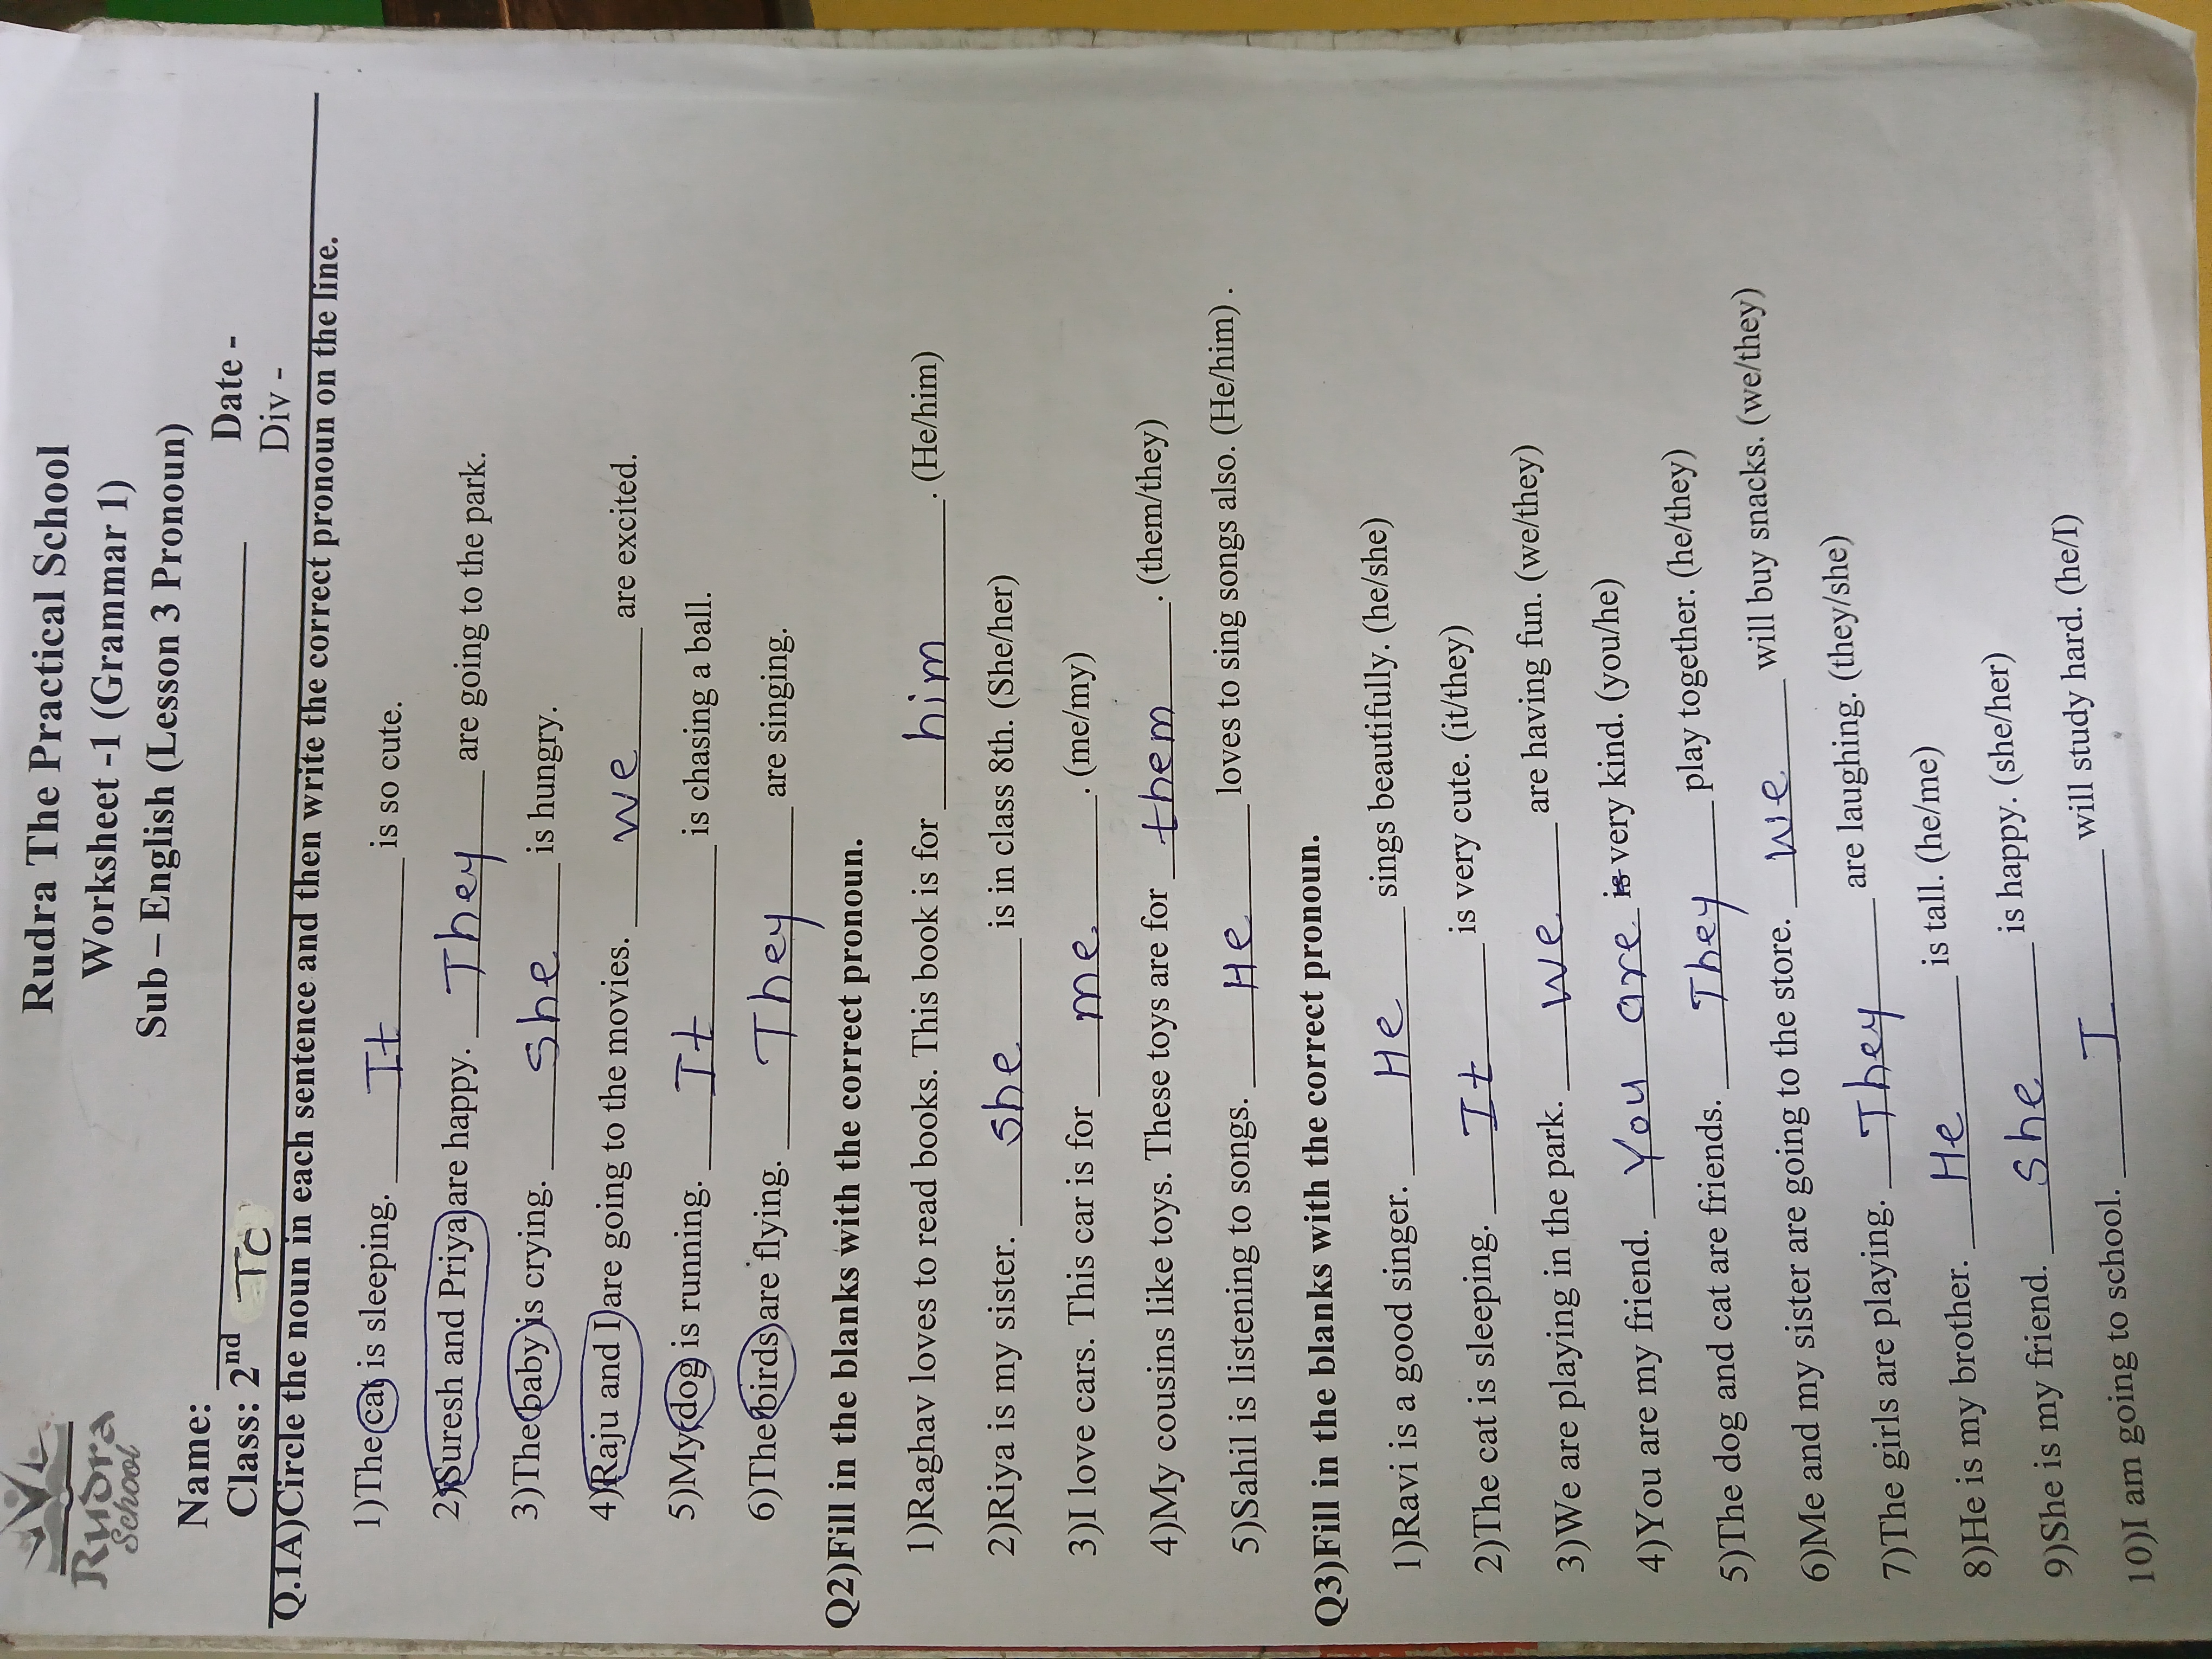 Rudra
School
Rudra The Practical School
Worksheet -1 (Grammar 1)
Sub – English (Lesson 3 Pronoun)
Name: ____________ Date -
Class: 2nd TC Div -
Q.1A)Circle the noun in each sentence and then write the correct pronoun on the line.
1)The cat is sleeping. It is so cute.
2)Suresh and Priya are happy. They are going to the park.
3)The baby is crying. She is hungry.
4)Raju and I are going to the movies. we are excited.
5)My dog is running. It is chasing a ball.
6)The birds are flying. They are singing.
Q2)Fill in the blanks with the correct pronoun.
1)Raghav loves to read books. This book is for him. (He/him)
2)Riya is my sister. She is in class 8th. (She/her)
3)I love cars. This car is for me. (me/my)
4)My cousins like toys. These toys are for them. (them/they)
5)Sahil is listening to songs. He loves to sing songs also. (He/him) .
Q3)Fill in the blanks with the correct pronoun.
1)Ravi is a good singer. He sings beautifully. (he/she)
2)The cat is sleeping. It is very cute. (it/they)
3)We are playing in the park. We are having fun. (we/they)
4)You are my friend. You are is very kind. (you/he)
5)The dog and cat are friends. They play together. (he/they)
6)Me and my sister are going to the store. We will buy snacks. (we/they)
7)The girls are playing. They are laughing. (they/she)
8)He is my brother. He is tall. (he/me)
9)She is my friend. She is happy. (she/her)
10)I am going to school. I will study hard. (he/I)